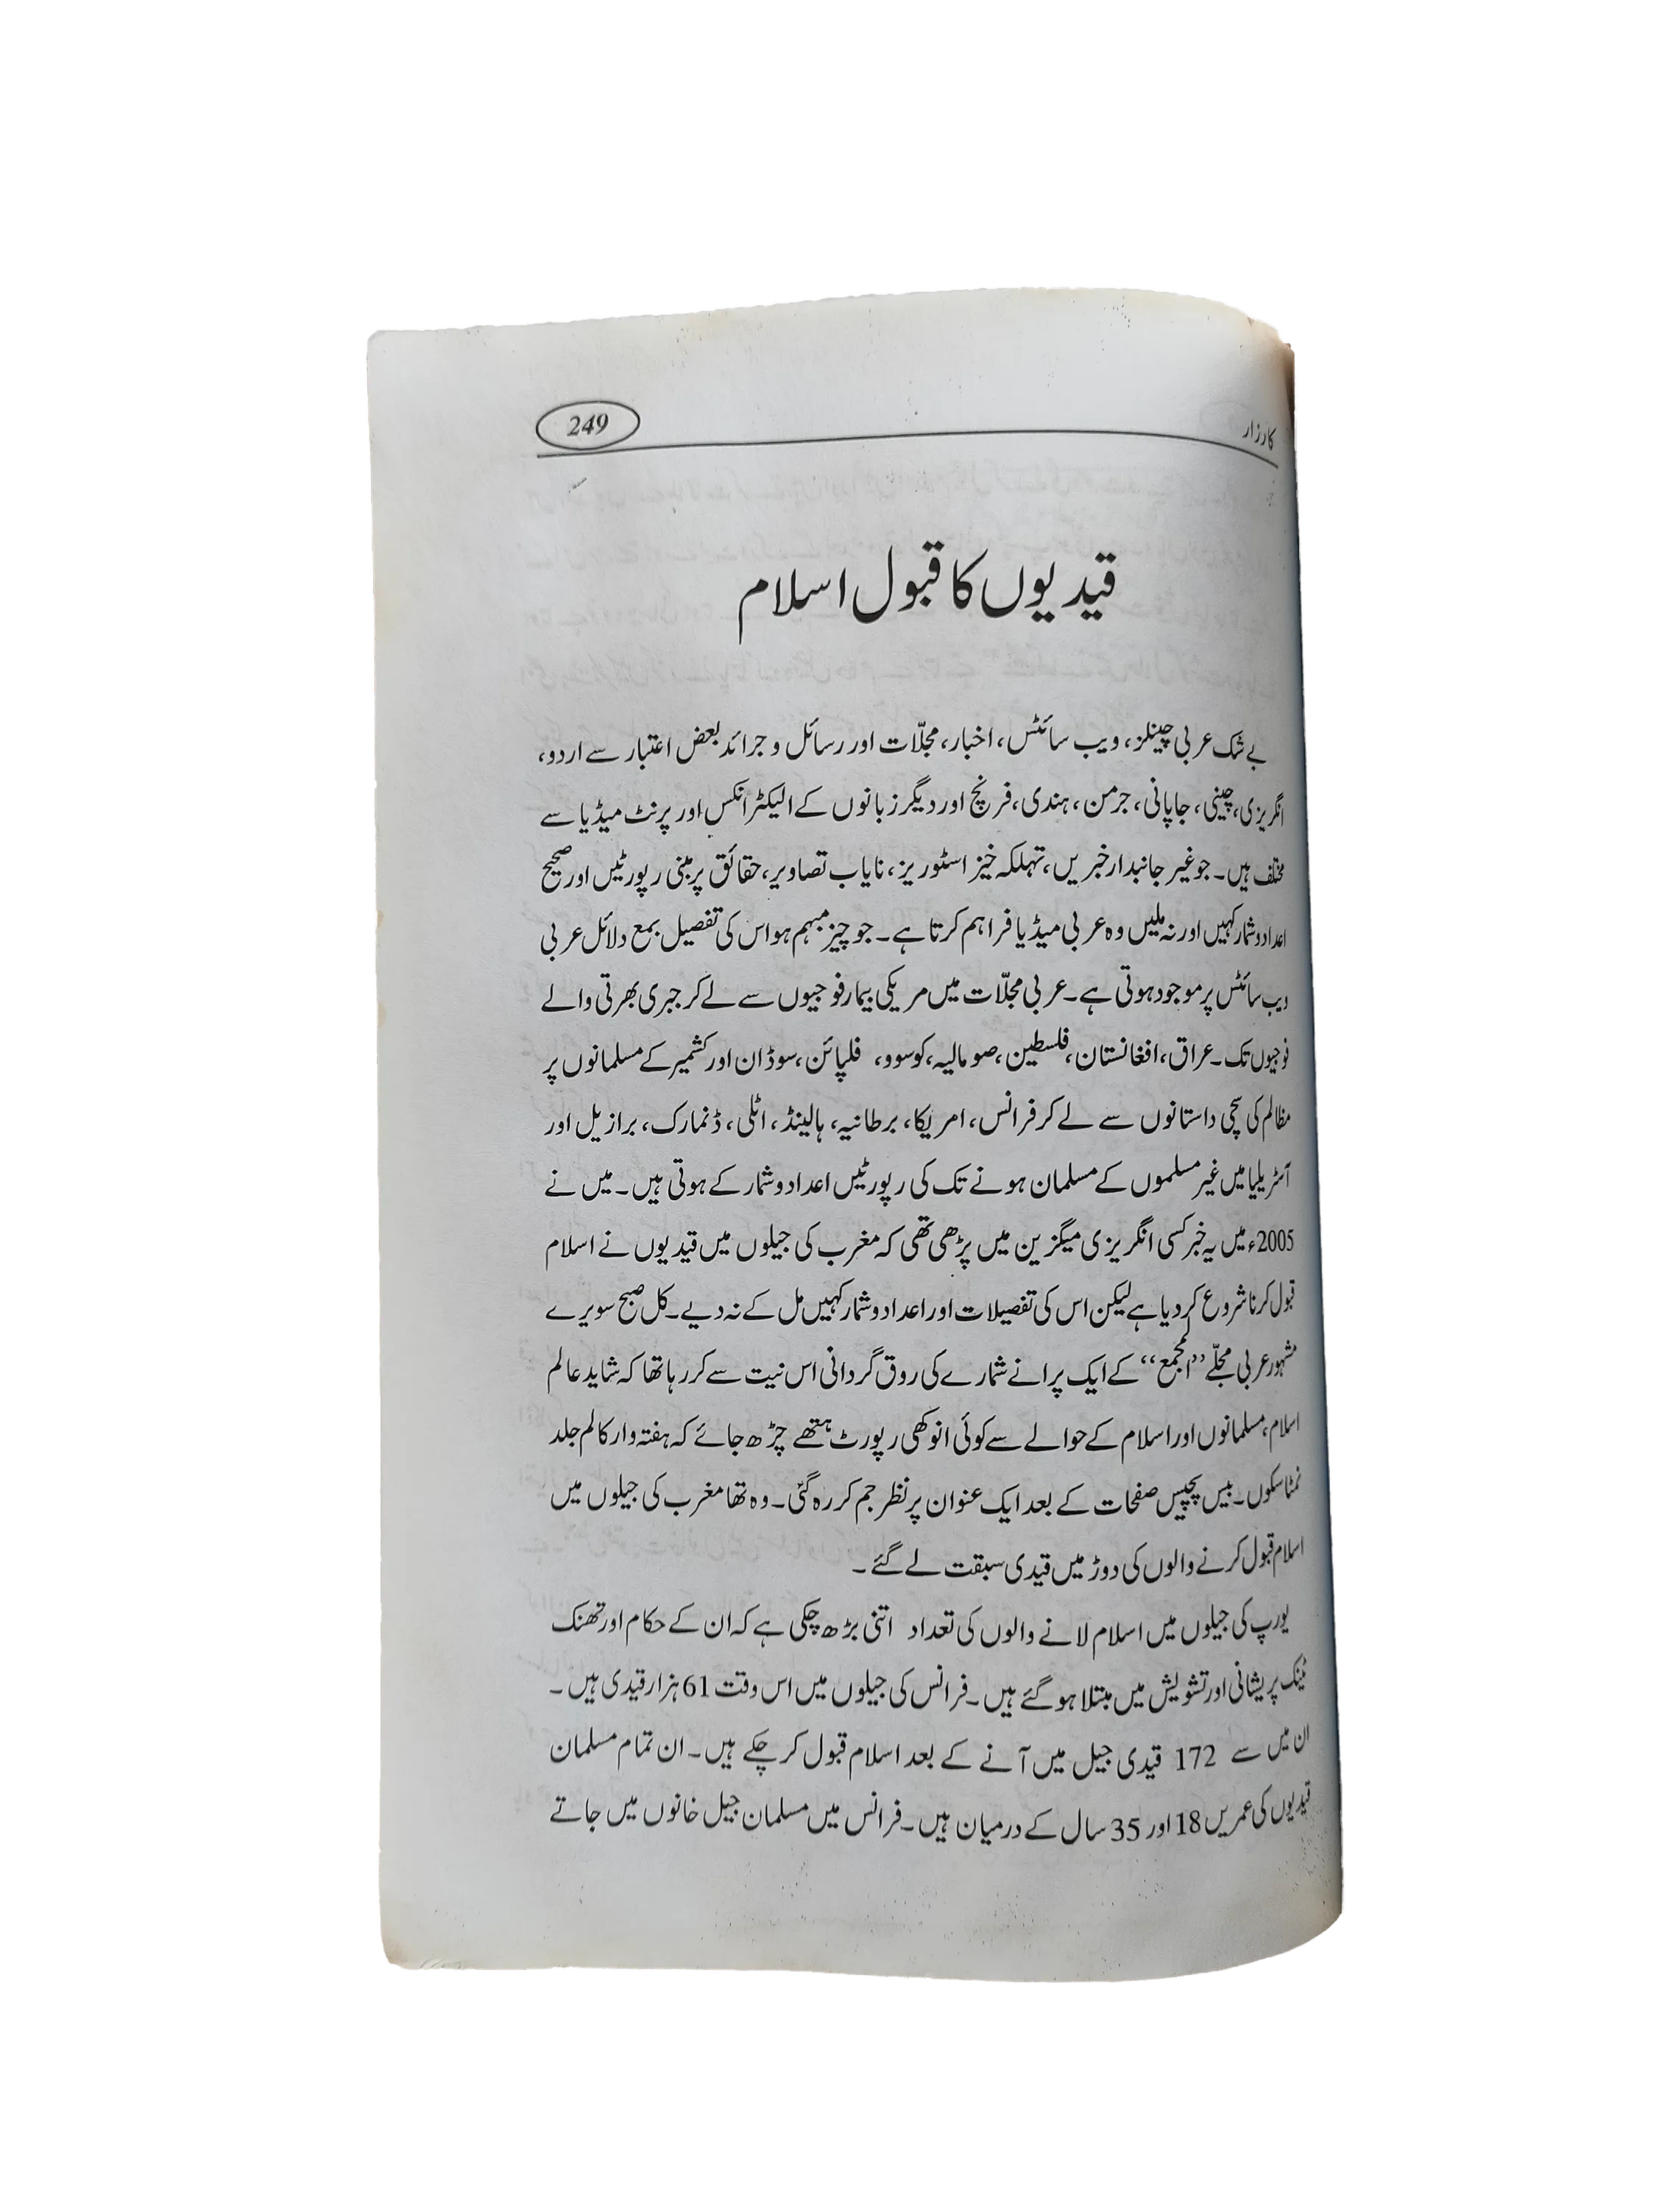 کارزار
249
قیدیوں کا قبول اسلام
بے شک عربی چینلز، ویب سائٹس، اخبار، مجلّات اور رسائل و جرائد بعض اعتبار سے اردو،
انگریزی، چینی، جاپانی، جرمن، ہندی، فرنچ اور دیگر زبانوں کے الیکٹرانکس اور پرنٹ میڈیا سے
مختلف ہیں۔ جو غیر جانبدار خبریں، تہلکہ خیز اسٹوریز، نایاب تصاویر، حقائق پر مبنی رپورٹیں اور صحیح
اعداد و شمار کہیں اور نہ ملیں وہ عربی میڈیا فراہم کرتا ہے۔ جو چیز مبہم ہو اس کی تفصیل بمع دلائل عربی
ویب سائٹس پر موجود ہوتی ہے۔ عربی مجلّات میں مریکی بیمار فوجیوں سے لے کر جبری بھرتی والے
فوجیوں تک۔ عراق، افغانستان، فلسطین، صومالیہ، کوسوو، فلپائن، سوڈان اور کشمیر کے مسلمانوں پر
مظالم کی سچی داستانوں سے لے کر فرانس، امریکا، برطانیہ، ہالینڈ، اٹلی، ڈنمارک، برازیل اور
آسٹریلیا میں غیر مسلموں کے مسلمان ہونے تک کی رپورٹیں اعداد و شمار کے ہوتی ہیں۔ میں نے
2005ء میں یہ خبر کسی انگریزی میگزین میں پڑھی تھی کہ مغرب کی جیلوں میں قیدیوں نے اسلام
قبول کرنا شروع کر دیا ہے لیکن اس کی تفصیلات اور اعداد و شمار کہیں مل کے نہ دیے۔ کل صبح سویرے
مشہور عربی مجلّے ”المجمع“ کے ایک پرانے شمارے کی روق گردانی اس نیت سے کر رہا تھا کہ شاید عالم
اسلام، مسلمانوں اور اسلام کے حوالے سے کوئی انوکھی رپورٹ ہتھے چڑھ جائے کہ ہفتہ وار کالم جلد
نمٹا سکوں۔ بیس پچیس صفحات کے بعد ایک عنوان پر نظر جم کر رہ گئی۔ وہ تھا مغرب کی جیلوں میں
اسلام قبول کرنے والوں کی دوڑ میں قیدی سبقت لے گئے۔
یورپ کی جیلوں میں اسلام لانے والوں کی تعداد اتنی بڑھ چکی ہے کہ ان کے حکام اور تھنک
ٹینک پریشانی اور تشویش میں مبتلا ہو گئے ہیں۔ فرانس کی جیلوں میں اس وقت 61 ہزار قیدی ہیں۔
ان میں سے 172 قیدی جیل میں آنے کے بعد اسلام قبول کر چکے ہیں۔ ان تمام مسلمان
قیدیوں کی عمریں 18 اور 35 سال کے درمیان ہیں۔ فرانس میں مسلمان جیل خانوں میں جاتے